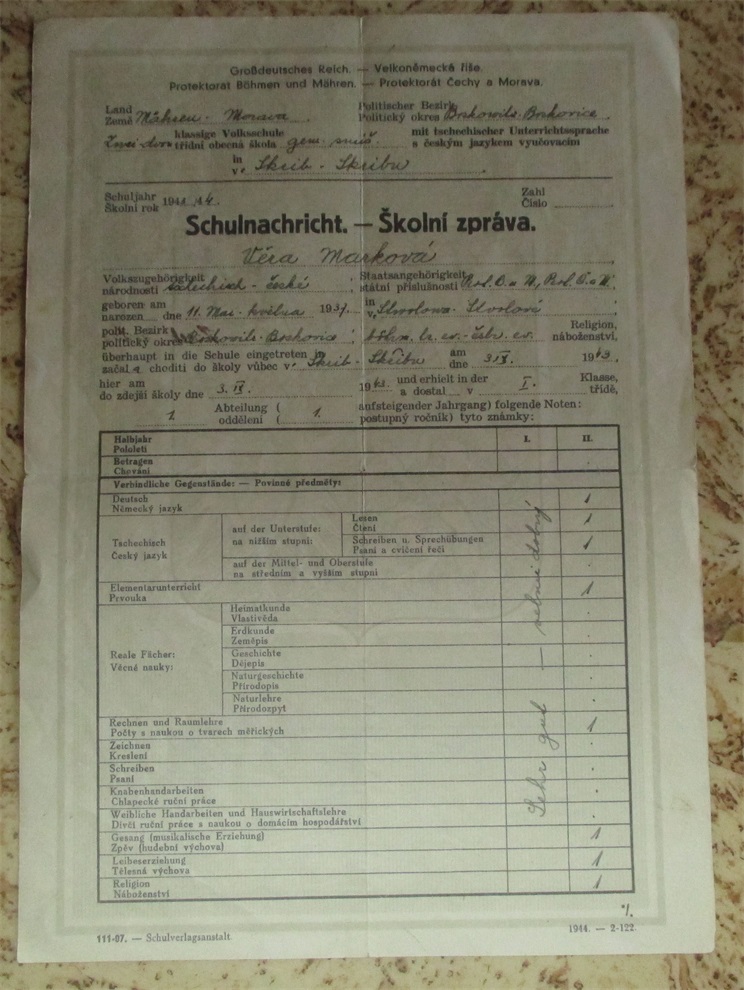 Großdeutsches Reich. — Velkoněmecká říše.
Protektorat Böhmen und Mähren. — Protektorát Čechy a Morava.
Land Mähren - Morava Politischer Bezirk Boskowitz - Boskovice
Země Politický okres
klassige Volksschule mit tschechischer Unterrichtssprache
třídní obecná škola s českým jazykem vyučovacím
in Skrib - Skřibu
v
Schuljahr 194 Zahl
Školní rok Číslo
Schulnachricht. — Školní zpráva.
Věra Marková
Volkszugehörigkeit tschechisch - české Staatsangehörigkeit
národnosti státní příslušnosti
geboren am 11. Mai - května 1937 in
narozen dne v
polit. Bezirk Boskowitz - Boskovice Religion,
politický okres náboženství,
überhaupt in die Schule eingetreten in Skrib - Skřibu am 3. IX. 1943,
začal a choditi do školy vůbec v dne
hier am 3. IX. 1943 und erhielt in der I. Klasse,
do zdejší školy dne a dostal v třídě,
1. Abteilung ( 1. aufsteigender Jahrgang) folgende Noten:
oddělení ( postupný ročník) tyto známky:
Halbjahr I. II.
Pololetí
Betragen
Chování
Verbindliche Gegenstände: — Povinné předměty:
Deutsch 1
Německý jazyk
Tschechisch
Český jazyk
auf der Unterstufe:
na nižším stupni:
Lesen 1
Čtení
Schreiben u. Sprechübungen 1
Psaní a cvičení řeči
auf der Mittel- und Oberstufe
na středním a vyšším stupni
Elementarunterricht 1
Prvouka
Reale Fächer:
Věcné nauky:
Heimatkunde
Vlastivěda
Erdkunde
Zeměpis
Geschichte
Dějepis
Naturgeschichte
Přírodopis
Naturlehre
Přírodozpyt
Rechnen und Raumlehre 1
Počty s naukou o tvarech měřických
Zeichnen
Kreslení
Schreiben
Psaní
Knabenhandarbeiten
Chlapecké ruční práce
Weibliche Handarbeiten und Hauswirtschaftslehre
Dívčí ruční práce s naukou o domácím hospodářství
Gesang (musikalische Erziehung) 1
Zpěv (hudební výchova)
Leibeserziehung 1
Tělesná výchova
Religion 1
Náboženství
Sehr gut — velmi dobrý
111-07. — Schulverlagsanstalt.
1944. — 2-122